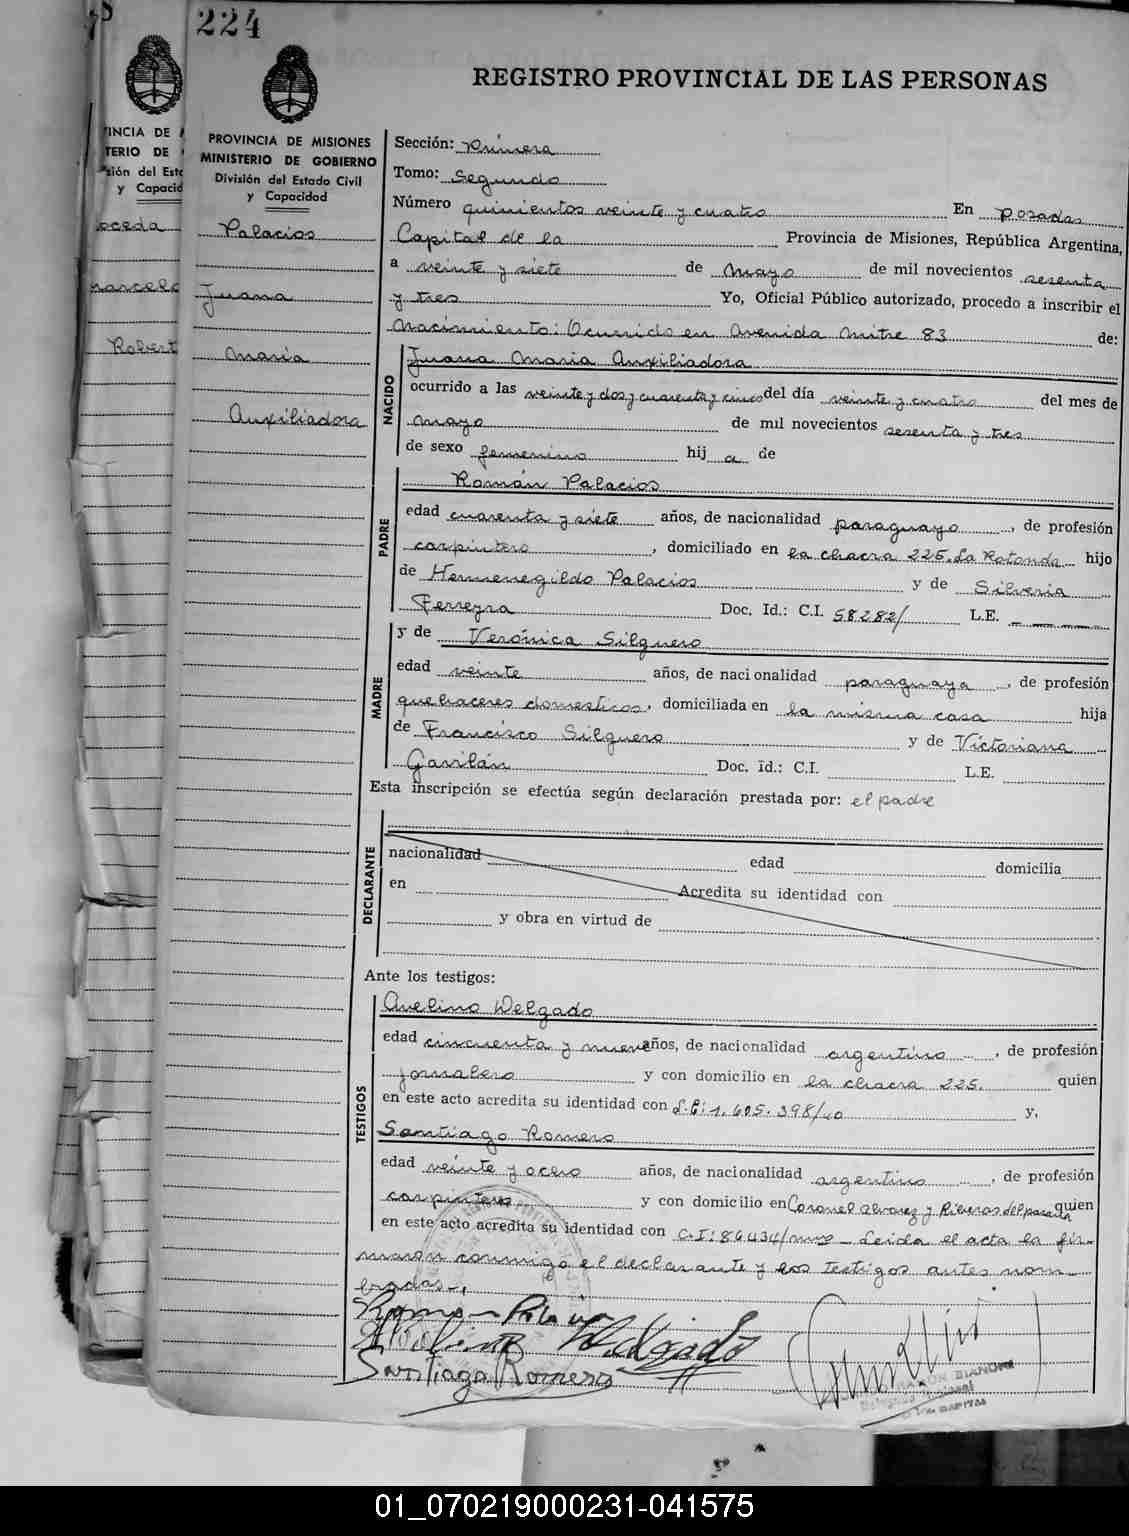 224
REGISTRO PROVINCIAL DE LAS PERSONAS
PROVINCIA DE MISIONES
MINISTERIO DE GOBIERNO
División del Estado Civil
y Capacidad
Palacios
Juana
Maria
Auxiliadora
Sección: Primera
Tomo: Segundo
Número quinientos veinte y cuatro En Posadas
Capital de la Provincia de Misiones, República Argentina,
a veinte y siete de Mayo de mil novecientos sesenta
y tres Yo, Oficial Público autorizado, procedo a inscribir el
Nacimiento: Ocurrido en Avenida Mitre 83 de:
NACIDO
Juana Maria Auxiliadora
ocurrido a las veinte y dos y cuarenta y cinco del día veinte y cuatro del mes de
mayo de mil novecientos sesenta y tres
de sexo femenino hij a de
PADRE
Román Palacios
edad cuarenta y siete años, de nacionalidad paraguayo, de profesión
carpintero, domiciliado en la chacra 225. La Rotonda hijo
de Hermenegildo Palacios y de Silveria
Ferreyra Doc. Id.: C.I. 58282/ L.E. _ _ _ _
MADRE
y de Verónica Silguero
edad veinte años, de nacionalidad paraguaya, de profesión
quehaceres domesticos, domiciliada en la misma casa hija
de Francisco Silguero y de Victoriana
Gavilán Doc. Id.: C.I. L.E.
Esta inscripción se efectúa según declaración prestada por: el padre
DECLARANTE
nacionalidad edad domicilia
en Acredita su identidad con
y obra en virtud de
Ante los testigos:
TESTIGOS
Avelino Delgado
edad cincuenta y nueve años, de nacionalidad argentino, de profesión
jornalero y con domicilio en la chacra 225. quien
en este acto acredita su identidad con L.E: 1.605.398/ y,
Santiago Romero
edad veinte y ocho años, de nacionalidad argentino, de profesión
carpintero y con domicilio en Coronel Alvarez y Riberas del paraná quien
en este acto acredita su identidad con C.I: 86434/ Leida el acta la fir-
maron conmigo el declarante y los testigos antes nom-
brados-.
Delgado
Santiago Romero
01_070219000231-041575